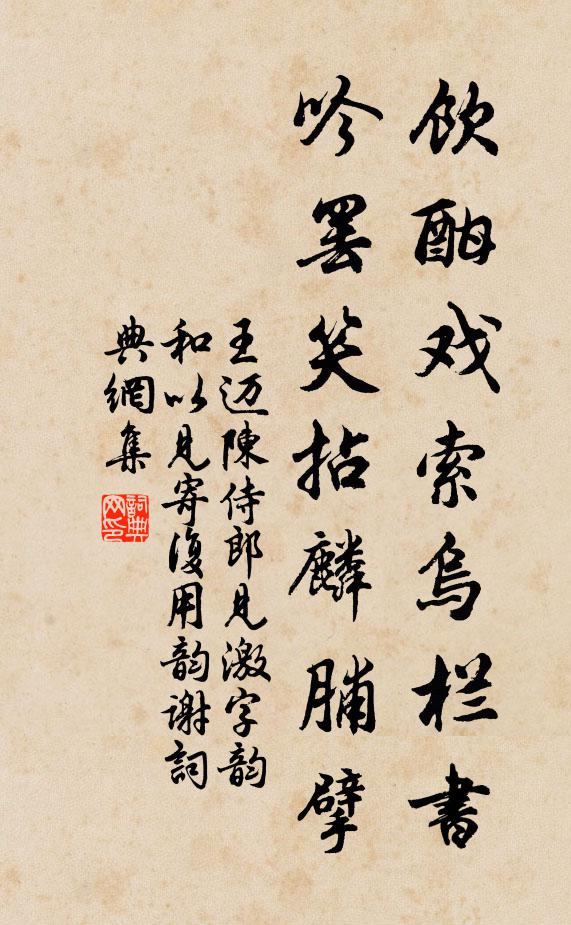 飲酣戏索烏栏書
吟罢笑拈麟脯擘
王迈陳侍郎見激字韵
和以見寄復用韵謝詞
典網集
詞典
网印